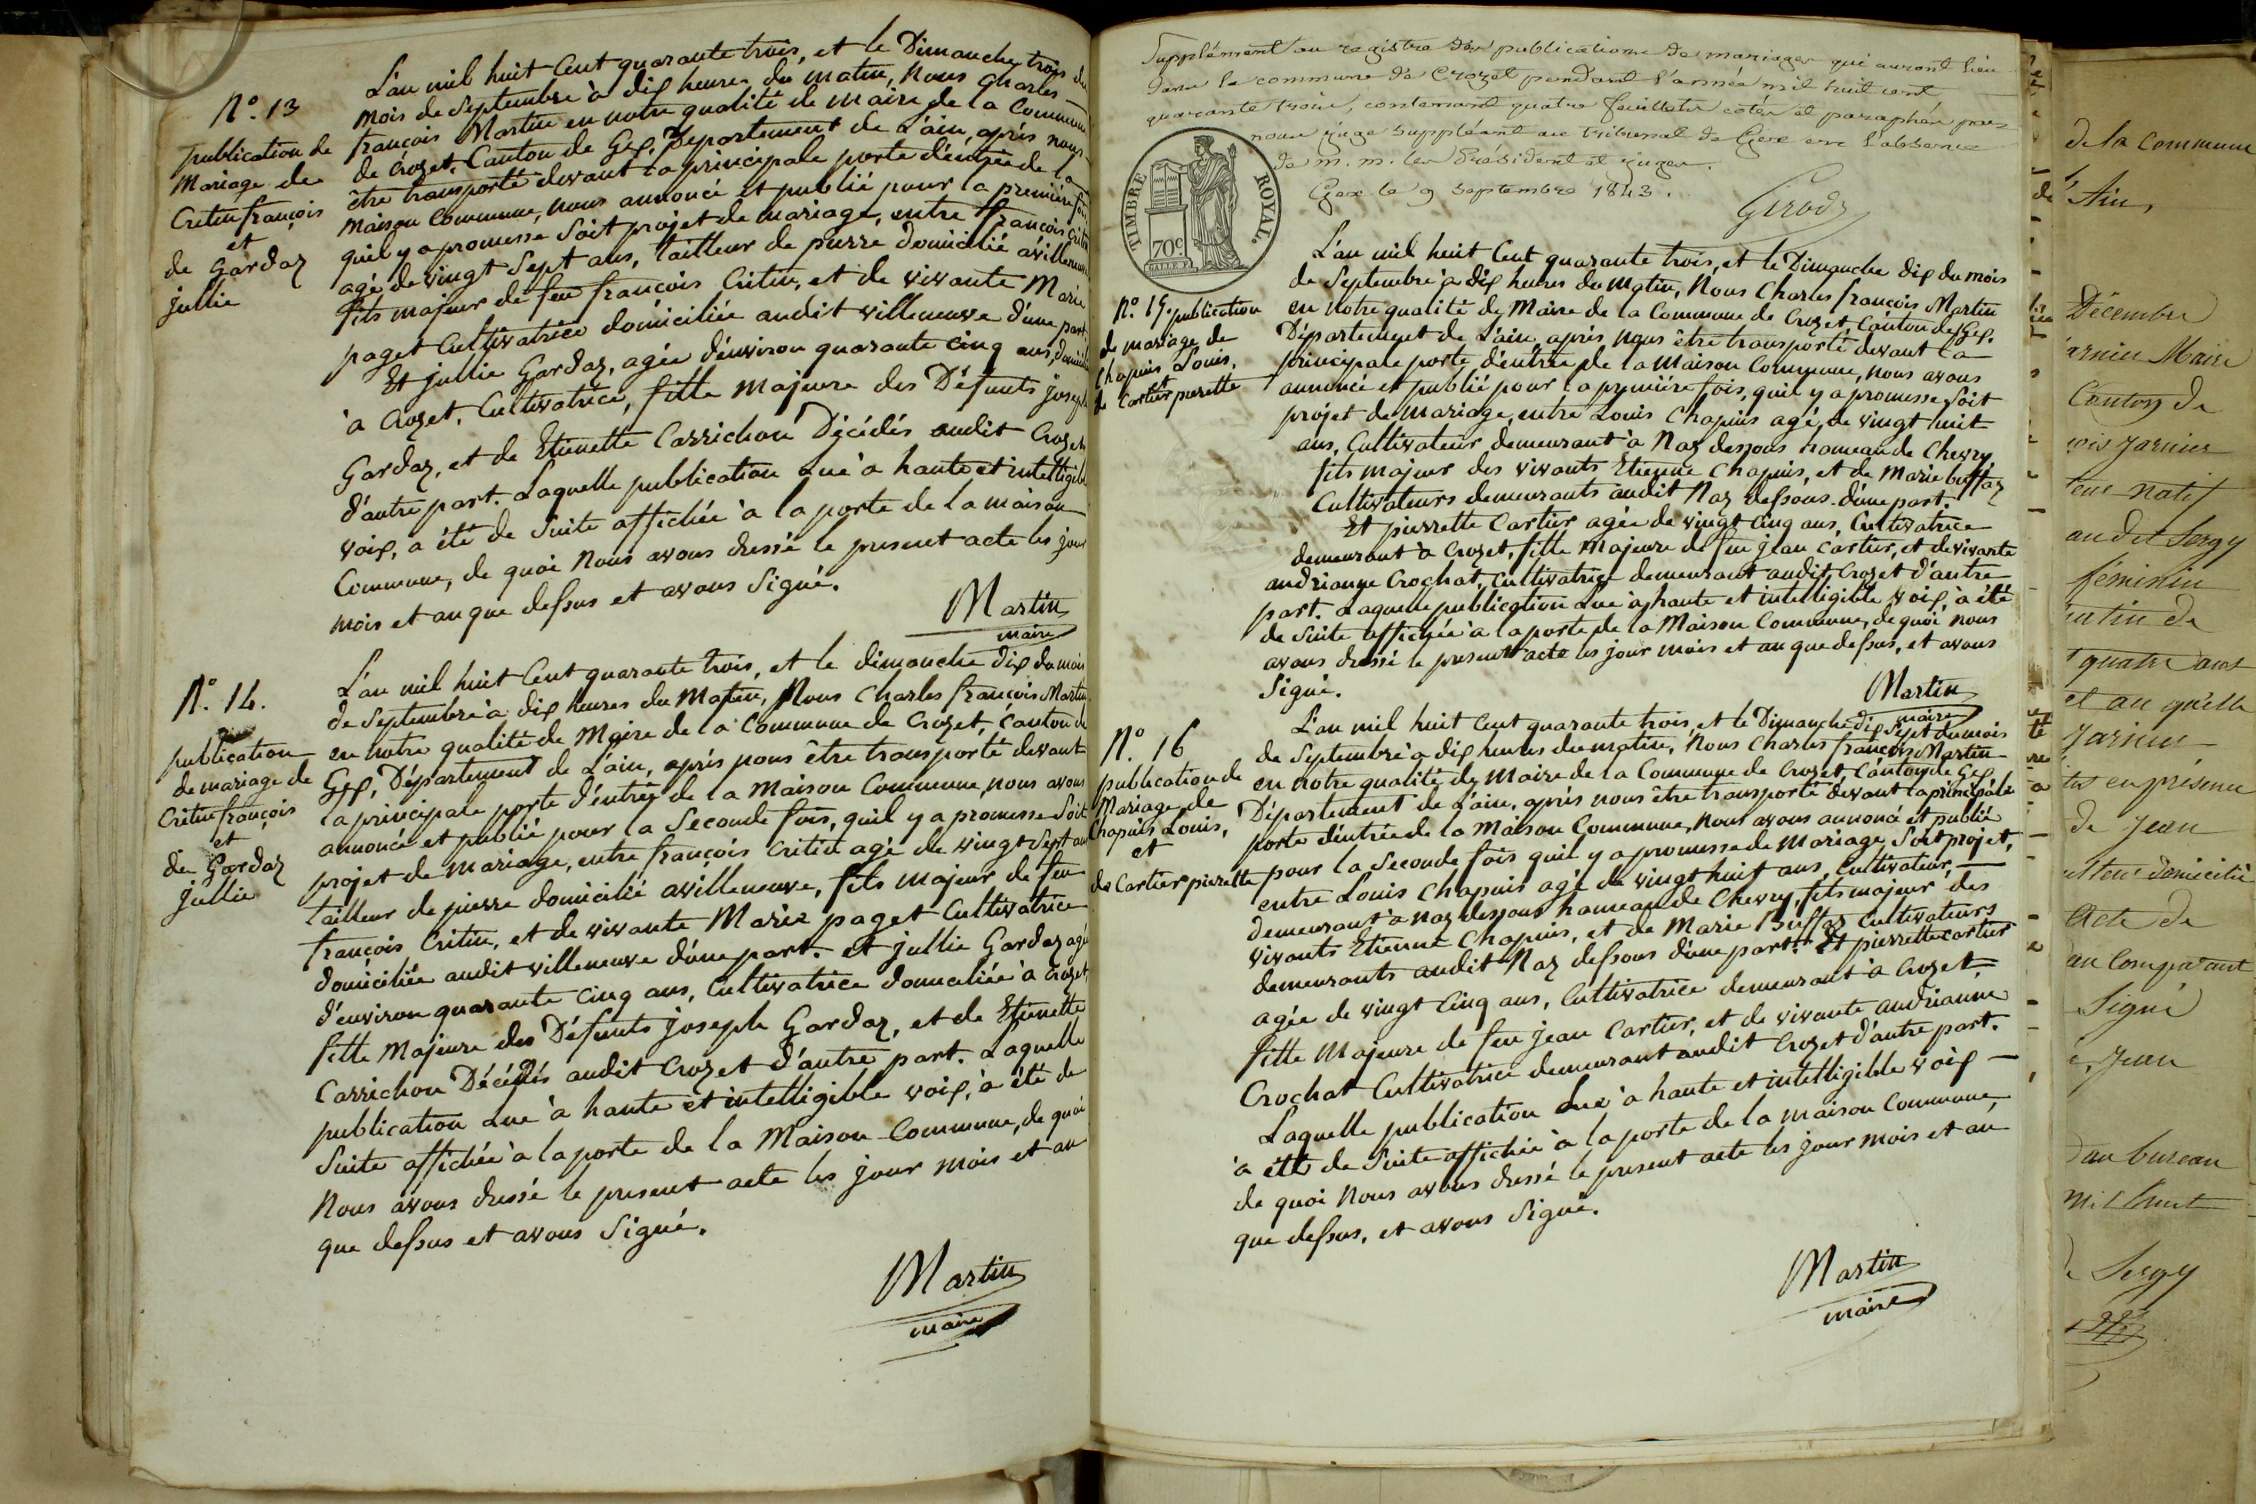 N.º 13
publication de
Mariage de
Critin françois
et
de Gardaz
jullie
L'an mil huit Cent quarante trois, et le Dimanche trois du
mois de Septembre à dix heures du matin, Nous Charles
françois Martin en notre qualité de Maire de la Commune
de Crozet, Canton de Gex, Département de L'ain, après nous
être transporté devant la principale porte d'entrée de la
Maison Commune, nous annoncé et publié pour la première fois
quil y a promesse Soit projet de mariage, entre françois Critin
agé de vingt Sept ans, tailleur de pierre domicilié à villeneuve
fils majeur de feu françois Critin, et de vivante Marie
paget Cultivatrice domiciliée audit villeneuve d'une part,
Et jullie Gardaz, agée d'environ quarante cinq ans,
à Crozet, Cultivatrice, fille majeure des Défunts joseph
Gardaz, et de Etiennette Carrichon Décédés audit Crozet
d'autre part. Laquelle publication Lue à haute et intelligible
voix, a été de Suite affichée à la porte de la maison
Commune, de quoi Nous avons dressé le present acte les jour
mois et an que dessus et avons Signé.
Martin
maire
N.º 14.
publication
de mariage de
Critin françois
et
de Gardaz
jullie
L'an mil huit Cent quarante trois, et le dimanche dix du mois
de Septembre à dix heures du Matin, Nous Charles françois Martin
en notre qualité de Maire de la Commune de Crozet, Canton de
Gex, Département de L'ain, après nous être transporté devant
la principale porte d'entrée de la Maison Commune, nous avons
annoncé et publié pour la Seconde fois, quil y a promesse Soit
projet de mariage, entre françois Critin agé de vingt Sept ans
tailleur de pierre domicilié a villeneuve, fils majeur de feu
françois Critin, et de vivante Marie paget Cultivatrice
domiciliée audit villeneuve d'une part. et jullie Gardaz agée
d'environ quarante cinq ans, Cultivatrice domiciliée à Crozet
fille Majeure des Défunts joseph Gardaz, et de Etiennette
Carrichon Décédés audit Crozet d'autre part. Laquelle
publication Lue à haute et intelligible voix, à été de
Suite affichée à la porte de la Maison Commune, de quoi
Nous avons dressé le present acte les jour mois et an
que dessus et avons Signé.
Martin
maire
Supplément au registre des publications de mariages qui auront lieu
dans la commune de Crozet pendant l'année mil huit cent
quarante trois, contenant quatre feuillets cotés et paraphés par
nous juge suppléant au tribunal de Gex en l'absence
de m. m. les Président et juges.
Gex le 9 Septembre 1843.
Girod
TIMBRE ROYAL.
70c
N.º 15. publication
de mariage de
Chapuis Louis,
et
de Cartier pierrette
L'an mil huit Cent quarante trois, et le Dimanche dix du mois
de Septembre à dix heures du Matin, Nous Charles françois Martin
en notre qualité de Maire de la Commune de Crozet, Canton de Gex,
Département de L'ain, après nous être transporté devant la
principale porte d'entrée de la Maison Commune, nous avons
annoncé et publié pour la première fois, quil y a promesse Soit
projet de mariage, entre Louis Chapuis agé de vingt huit
ans, Cultivateur demeurant à Naz dessous hameau de Chevry,
fils majeur des vivants Etienne Chapuis, et de Marie buffaz
Cultivateurs demeurants audit Naz dessous d'une part.
Et pierrette Cartier agée de vingt Cinq ans, Cultivatrice
demeurant à Crozet, fille Majeure de feu jean Cartier, et de vivante
andrianne Crochat, Cultivatrice demeurant audit Crozet d'autre
part. Laquelle publication Lue à haute et intelligible voix, à été
de Suite affichée à la porte de la Maison Commune, de quoi nous
avons dressé le present acte les jour mois et an que dessus, et avons
Signé.
Martin
maire
N.º 16
publication de
Mariage de
Chapuis Louis,
et
de Cartier pierrette
L'an mil huit Cent quarante trois, et le Dimanche dix Sept du mois
de Septembre à dix heures du matin, Nous Charles françois Martin
en notre qualité de Maire de la Commune de Crozet, Canton de Gex,
Département de L'ain, après nous être transporté devant la principale
porte d'entrée de la Maison Commune, Nous avons annoncé et publié
pour la Seconde fois quil y a promesse de Mariage Soit projet,
entre Louis Chapuis agé de vingt huit ans, Cultivateur,
demeurant à Naz dessous hameau de Chevry, fils majeur des
vivants Etienne Chapuis, et de Marie Buffaz Cultivateurs
demeurants audit Naz dessous d'une part. Et pierrette Cartier
agée de vingt Cinq ans, Cultivatrice demeurant à Crozet,
fille Majeure de feu jean Cartier, et de vivante andrianne
Crochat Cultivatrice demeurant audit Crozet d'autre part.
Laquelle publication Lue à haute et intelligible voix
à été de Suite affichée à la porte de la maison Commune,
de quoi Nous avons dressé le present acte les jour mois et an
que dessus, et avons Signé.
Martin
maire
de la commune
Ain,
Décembre
Maire
Canton de
natif
audit Sergy
féminin
quatre ans
et an qu'elle
en présence
de Jean
domicilié
Acte de
Comparant
Signé
Jean
au bureau
mil huit
Sergy